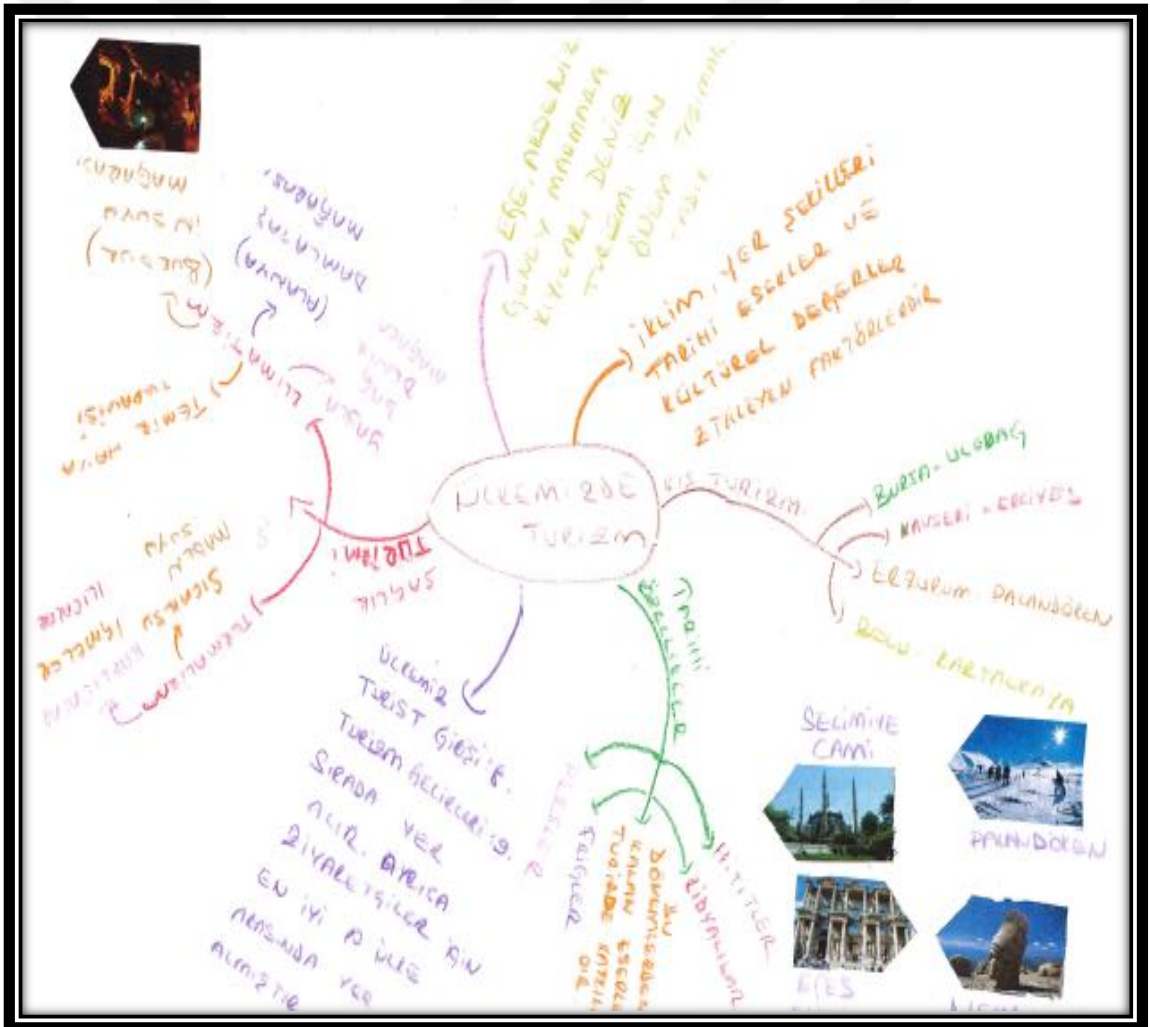 ÜLKEMİZDE
TURİZM
EGE, AKDENİZ
GÜNEY MARMARA
KIYILARI DENİZ
TURİZMİ İÇİN
ÖNEM TAŞIMAK
-TADIR
İKLİM, YER ŞEKİLLERİ
TARİHİ ESERLER VE
KÜLTÜREL DEĞERLER
ETKİLEYEN FAKTÖRLERDİR
KIŞ TURİZM
BURSA - ULUDAĞ
KAYSERİ - ERCİYES
ERZURUM PALANDÖKEN
BOLU - KARTALKAYA
TARİHİ
ÖZELLİKLER
HİTİTLER
LİDYALILAR
BU
DÖNEMLERDEN
KALMAN ESERLE
TURİZDE KATKILI
DIR
FRİGLER
ÜLKEMİZ
TURİST GİRŞİ 8.
TURİZM GELİRLERİ 9.
SIRADA YER
ALIR. AYRICA
ZİYARETÇİLER İÇİN
EN İYİ ÜLKE
ARASINDA YER
ALMIŞTIR
SAĞLIK
TURİZMİ
TERMALİZM
KAPLICALAR
SICAKSU İÇMELER
MADEN
SUYU
ILICALAR
KLİMATİZM
TEMİZ HAVA
TEDAVİSİ
YAYLA
DAĞ
DENİZ
MAĞARA
(ALANYA)
DAMLATAŞ
MAĞARASI
(BURDUR)
İN SUYU
MAĞARASI
SELİMİYE
CAMİ
PALANDÖKEN
EFES